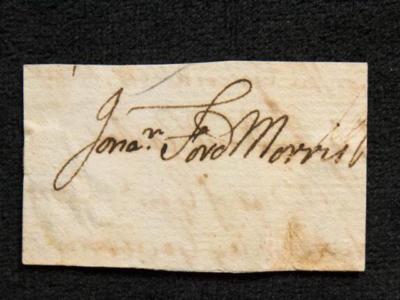 Jonan. Ford Morris